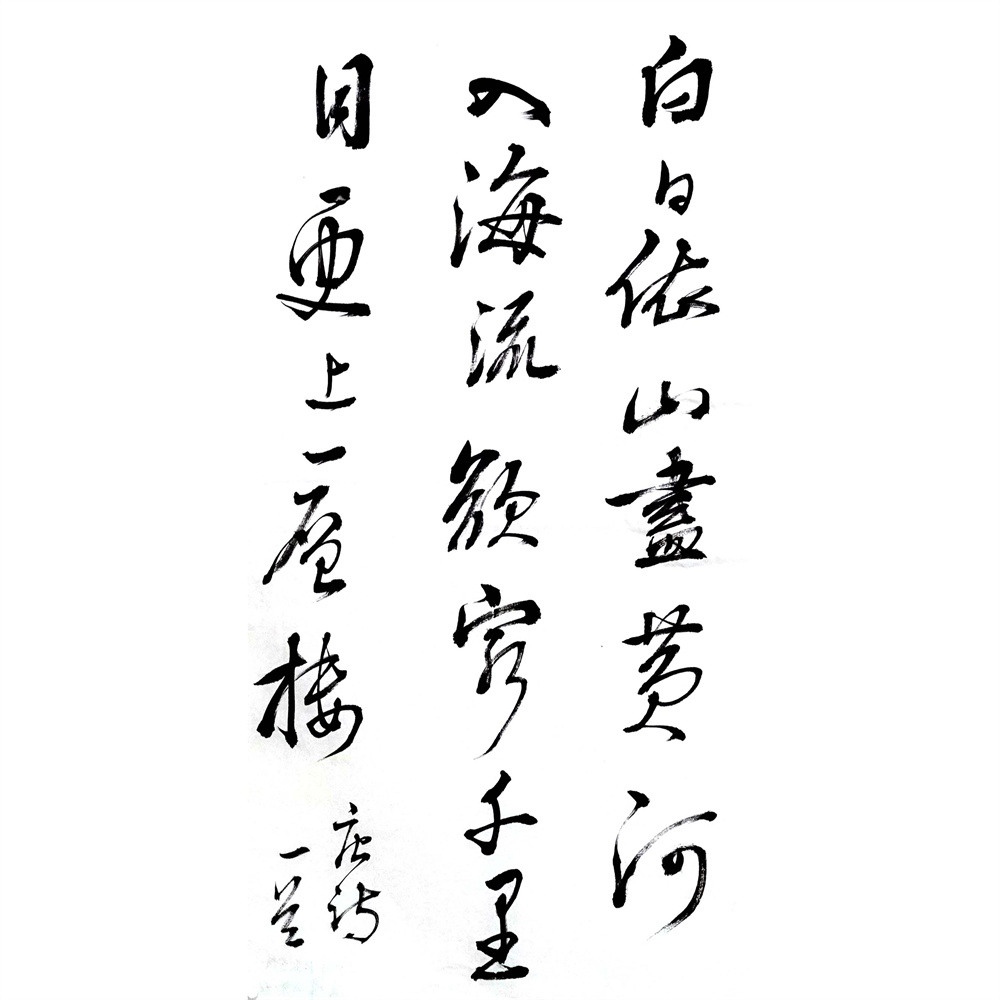 白日依山盡黄河
入海流欲窮千里
目更上一層樓
唐詩
一首